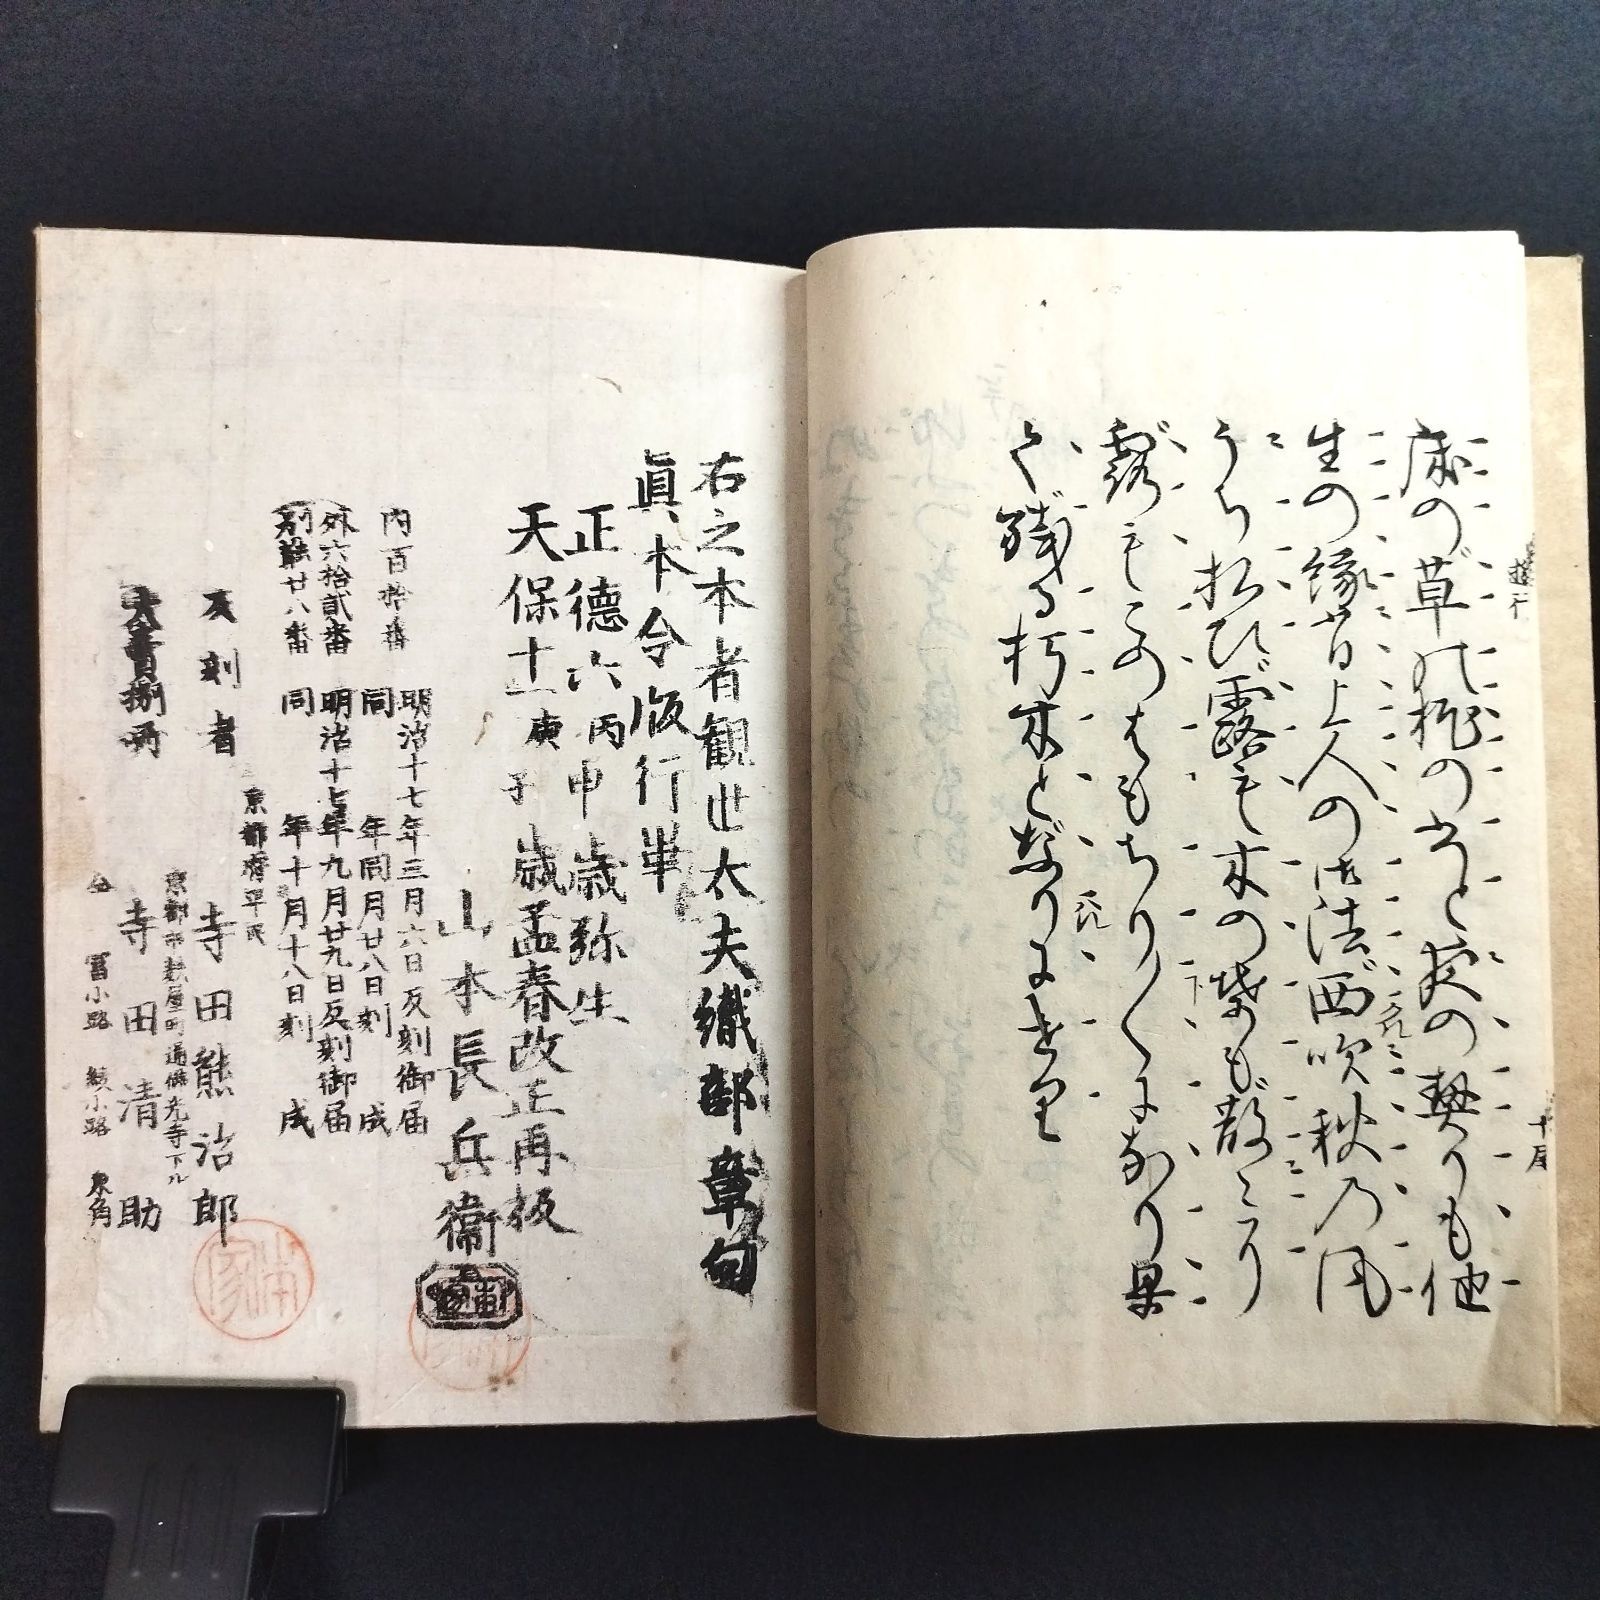 床の草の枕の一と夜の契りも他
生の縁ある上人の御法西吹秋乃風
うち払ひ露も木の葉も散〻り
露も木のはもちり〳〵になり果
て残る朽木と成りにけり
遊行
十尾
右之本者観世太夫織部章句
眞本令版行畢
正德六丙申歳弥生
天保十一庚子歳孟春改正再板
山本長兵衞
内百拾番 明治十七年三月六日反刻御届
同年同月廿八日刻成
外六拾貳番 明治十七年九月廿九日反刻御届
別能廿八番 同年十月十八日刻成
京都府平民
反刻者 寺田熊治郎
京都市麩屋町通佛光寺下ル
捌所 寺田清助
仝 冨小路 綾小路 東角